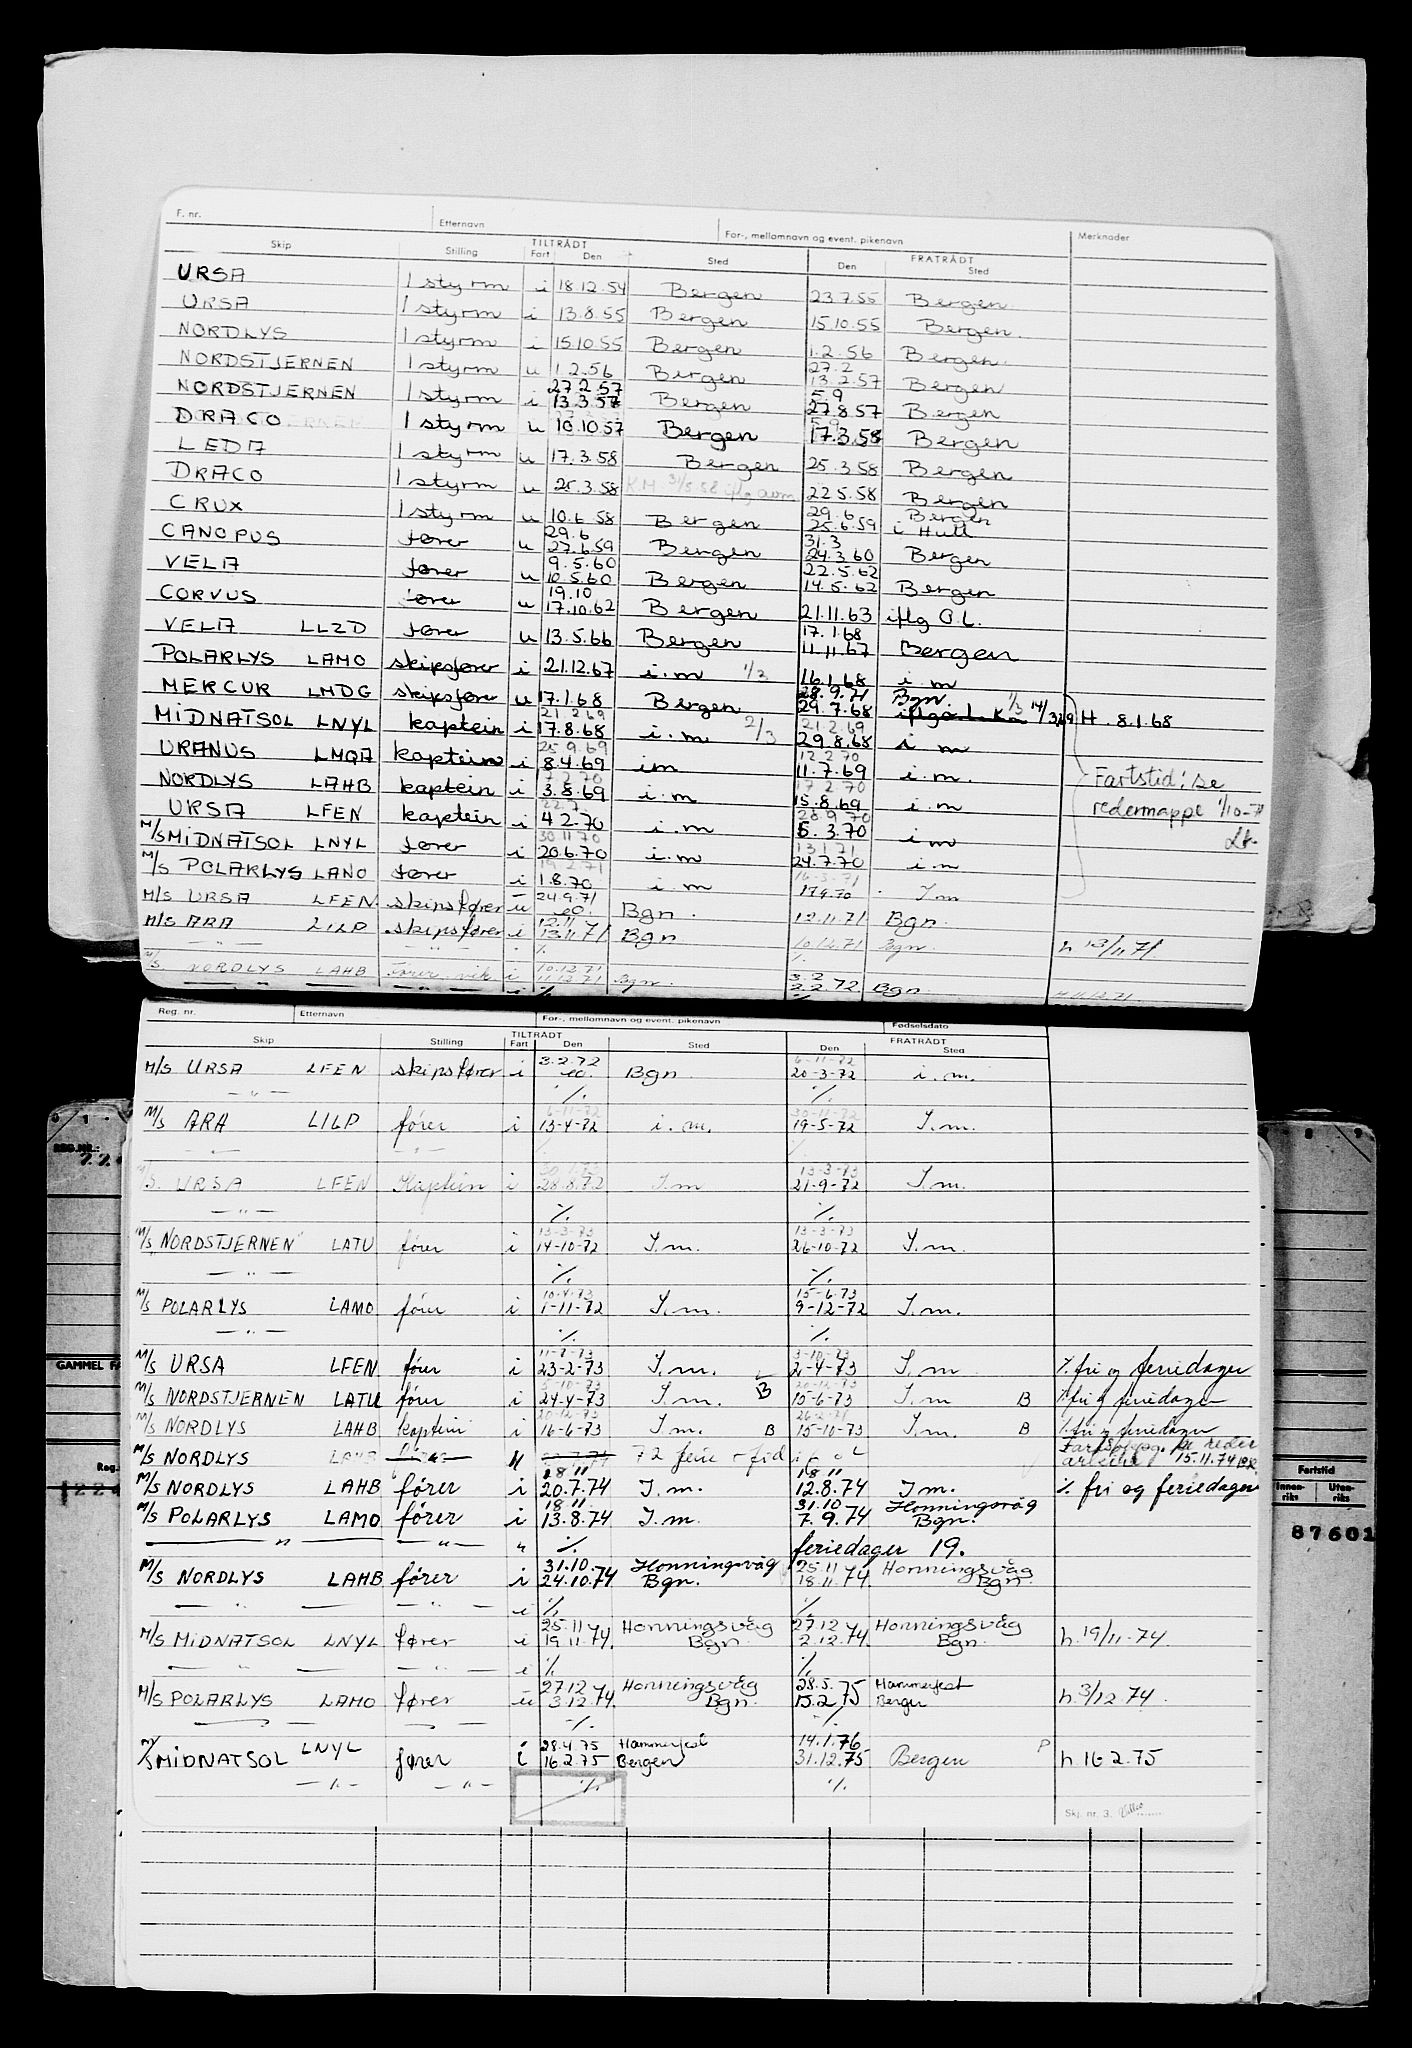 F. nr. Etternavn For-, mellomnavn og event. pikenavn Merknader
Skip Stilling TILTRÅDT Fart Den Sted FRATRÅDT Den Sted
URSA 1 styrm i 18.12.54 Bergen 23.7.55 Bergen
URSA 1 styrm i 13.8.55 Bergen 15.10.55 Bergen
NORDLYS 1 styrm i 15.10.55 Bergen 1.2.56 Bergen
NORDSTJERNEN 1 styrm u 1.2.56 Bergen 27.2 13.2.57 Bergen
NORDSTJERNEN 1 styrm i 27.2.57 13.3.57 Bergen 5.9 27.8.57 Bergen
DRACO 1 styrm u 10.10.57 Bergen 17.3.58 Bergen
LEDA 1 styrm u 17.3.58 Bergen 25.3.58 Bergen
DRACO 1 styrm u 25.3.58 22.5.58 Bergen
CRUX 1 styrm u 10.6.58 Bergen 29.6 25.6.59 Bergen i Hull
CANOPUS fører u 29.6 27.6.59 Bergen 31.3 24.3.60 Bergen
VELA fører u 9.5.60 10.5.60 Bergen 22.5.62 14.5.62 Bergen
CORVUS fører u 19.10 17.10.62 Bergen 21.11.63 iflg O.L.
VELA LLZD fører u 13.5.66 Bergen 17.1.68 11.11.67 Bergen
POLARLYS LAMO skipsfører i 21.12.67 i.m 1/3 16.1.68 i.m
MERCUR LMDG skipsfører u 17.1.68 Bergen 28.9.71 29.7.68 Bgn H. 8.1.68
MIDNATSOL LNYL kaptein i 21.2.69 17.8.68 i.m 2/3 21.2.69 29.8.68 i m
URANUS LMQA kaptein i 25.9.69 8.4.69 im 12.2.70 11.7.69 i.m.
NORDLYS LAHB kaptein i 17.2.70 3.8.69 i.m 17.2.70 15.8.69 i.m Fartstid: se
URSA LFEN kaptein i 22.7. 4.2.70 i.m 28.9.70 5.3.70 i m redermappe 1/10-71
M/S MIDNATSOL LNYL fører i 30.11.70 20.6.70 i.m 13.1.71 24.7.70 i.m Lt.
M/S POLARLYS LAMO fører i 19.2.71 1.8.70 i m 16.3.71 17.9.70 I m
M/S URSA LFEN skipsfører u 24.9.71 Bgn. 12.11.71 Bgn.
M/S ARA LILP skipsfører i 12.11 13.11.71 Bgn 10.12.71 Bgn. h 13/11 71
M/S NORDLYS LAHB Fører vik. i 10.12.71 11.12.71 Bgn. 3.2 2.2.72 Bgn.
— " — " i %
Reg. nr. Etternavn For-, mellomnavn og event. pikenavn Fødselsdato
Skip Stilling TILTRÅDT Fart Den Sted FRATRÅDT Den Sted
M/S URSA LFEN skipsfører i 3.2.72 Bgn 6-11-72 20-3-72 i.m.
— " — % %
M/S ARA LILP fører i 6-11-72 13-4-72 i.m. 30-11-72 19-5-72 I.m.
— " — — " —
M/S URSA LFEN Kaptein i 30.1.73 28.8.72 I.m 13-3-73 21-9-72 I.m.
— " — % %
M/S "NORDSTJERNEN" LATU fører i 13-3-73 14-10-72 I.m. 13-3-73 26-10-72 I.m.
— " — % %
M/S POLARLYS LAMO fører i 10.4.73 1-11-72 I.m. 15-6.73 9-12-72 I.m.
— " — % %
M/S URSA LFEN fører i 11-7-73 23-2-73 I.m. 3-10-73 2-4-73 I.m % fri og feriedager
M/S NORDSTJERNEN LATU fører i 5-10-73 24-4-73 I.m. B 15-6-73 I.m B % fri og feriedager
M/S NORDLYS LAHB kaptein i 20-12-73 16-6-73 I.m. B 15-10-73 I.m. B % fri og feriedager
M/S NORDLYS LAHB 72 ferie 15.11.74
M/S NORDLYS LAHB fører i 18 11 20.7.74 I.m. 18 11 12.8.74 I.m. % fri og feriedager
M/S POLARLYS LAMO fører i 18 11 13.8.74 I.m. 31.10 7.9.74 Honningsvåg Bgn.
— " — — " — " % feriedager 19.
M/S NORDLYS LAHB fører i 31.10 24.10.74 Honningsvåg Bgn. 25.11 18.11.74 Honningsvåg Bgn.
— " — — " — i % %
M/S MIDNATSOL LNYL fører i 25.11 19.11.74 Honningsvåg Bgn. 27.12 2.12.74 Honningsvåg Bgn. h. 19/11.74
— " — — " — i % %
M/S POLARLYS LAMO fører u 27.12 3.12.74 Honningsvåg Bgn. 28.5. 15.2.75 Hammerfest Bergen h. 3/12 74.
— " — % %
M/S MIDNATSOL LNYL fører i 28.4.75 16.2.75 Hammerfest Bergen 14.1.76 31.12.75 Bergen P h 16.2.75
— " — — " — % %
Skj. nr. 3.
REG.NR.:
GAMMEL
Reg.
Fartstid
Innen-riks Uten-riks
87601